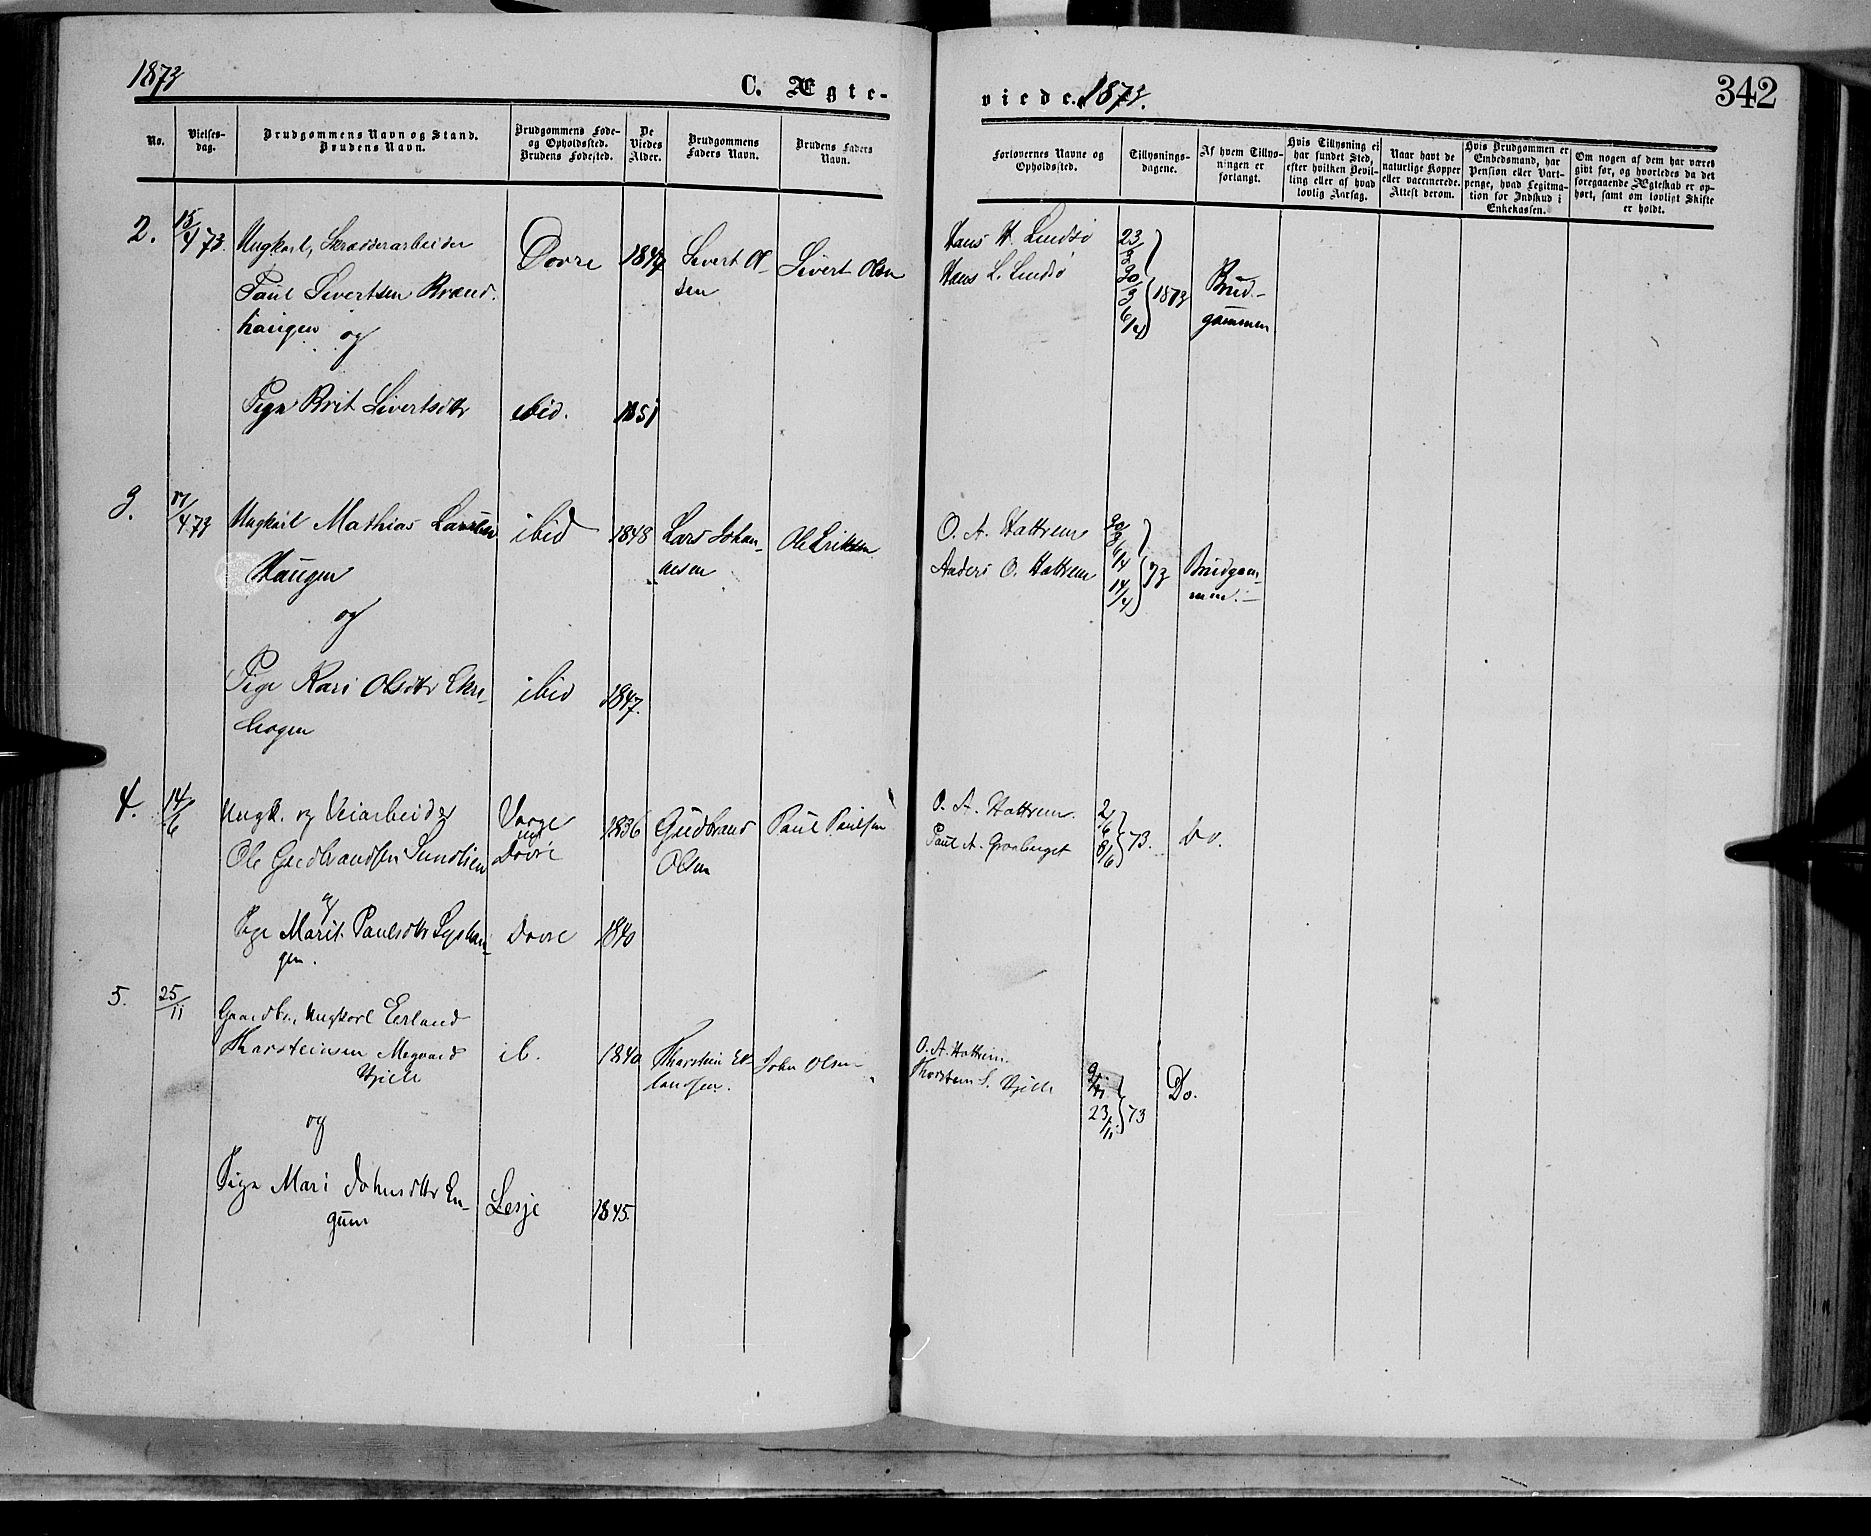 1873
C. Ægte-
viede. 1873.
342
No.
Vielses-
dag.
Brudgommens Navn og Stand.
Brudens Navn.
Brudgommens Føde-
og Opholdssted.
Brudens Fødested.
De
Viedes
Alder.
Brudgommens
Faders Navn.
Brudens Faders
Navn.
Forlovernes Navne og
Opholdssted.
Tillysnings-
dagene.
Af hvem Tillys-
ningen er
forlangt.
Hvis Tillysning ei
har fundet Sted,
efter hvilken Bevil-
ling eller af hvad
lovlig Aarsag.
Naar havt de
naturlige Kopper
eller vaccinerede.
Attest derom.
Hvis Brudgommen er
Embedsmand, har
Pension eller Vart-
penge, hvad Legitma-
tion for Indskud i
Enkekassen.
Om nogen af dem har været
givt før, og hvorledes da det
foregaaende Ægteskab er op-
hørt, samt om lovligt Skifte
er holdt.
2.
15/4 73.
Ungkarl, Skræderarbeider
Paul Sivertsen Brænd-
haugen
og
Pige Brit Sivertsdtr
Dovre
ibid.
1847
1851
Sivert Ol-
sen
Sivert Olsen
Hans H. Lindsø
Hans L. Lindsø
23/3
30/3
6/4
1873
Brud-
gommen
3.
17/4 73
Ungkarl Mathias Larsen
Haugen
og
Pige Kari Olsdtr
hogen
ibid
ibid
1848
1847.
Lars Johan-
nesen
Ole Eriksen
O. A. Hattrem
Anders O. Hattrem
30/3
6/4
14/4
73
Brudgom-
men.
4.
14/6
Ungk. og Veiarbeider
Ole Gudbrandsen Sundlien
og
Pige Marit Paulsdtr Lyshau-
gen.
Vaage
og
Dovre
Dovre
1836
1840
Gudbrand
Olsen
Paul Paulsen
O. A. Hattrem.
Paul A. Graaberget
2/6
8/6
73.
Do.
5.
25/11
Gaardbr. Ungkarl Erland
Thorsteinsen Megaard
Hjelle
og
Pige Mari Johnsdtr En-
gum
ib.
Lesje
1840
1845.
Thorstein Er-
landsen.
John Olsen
O. A. Hattrem.
Thorstein S. Hjelle
9/11
23/11
73
Do.